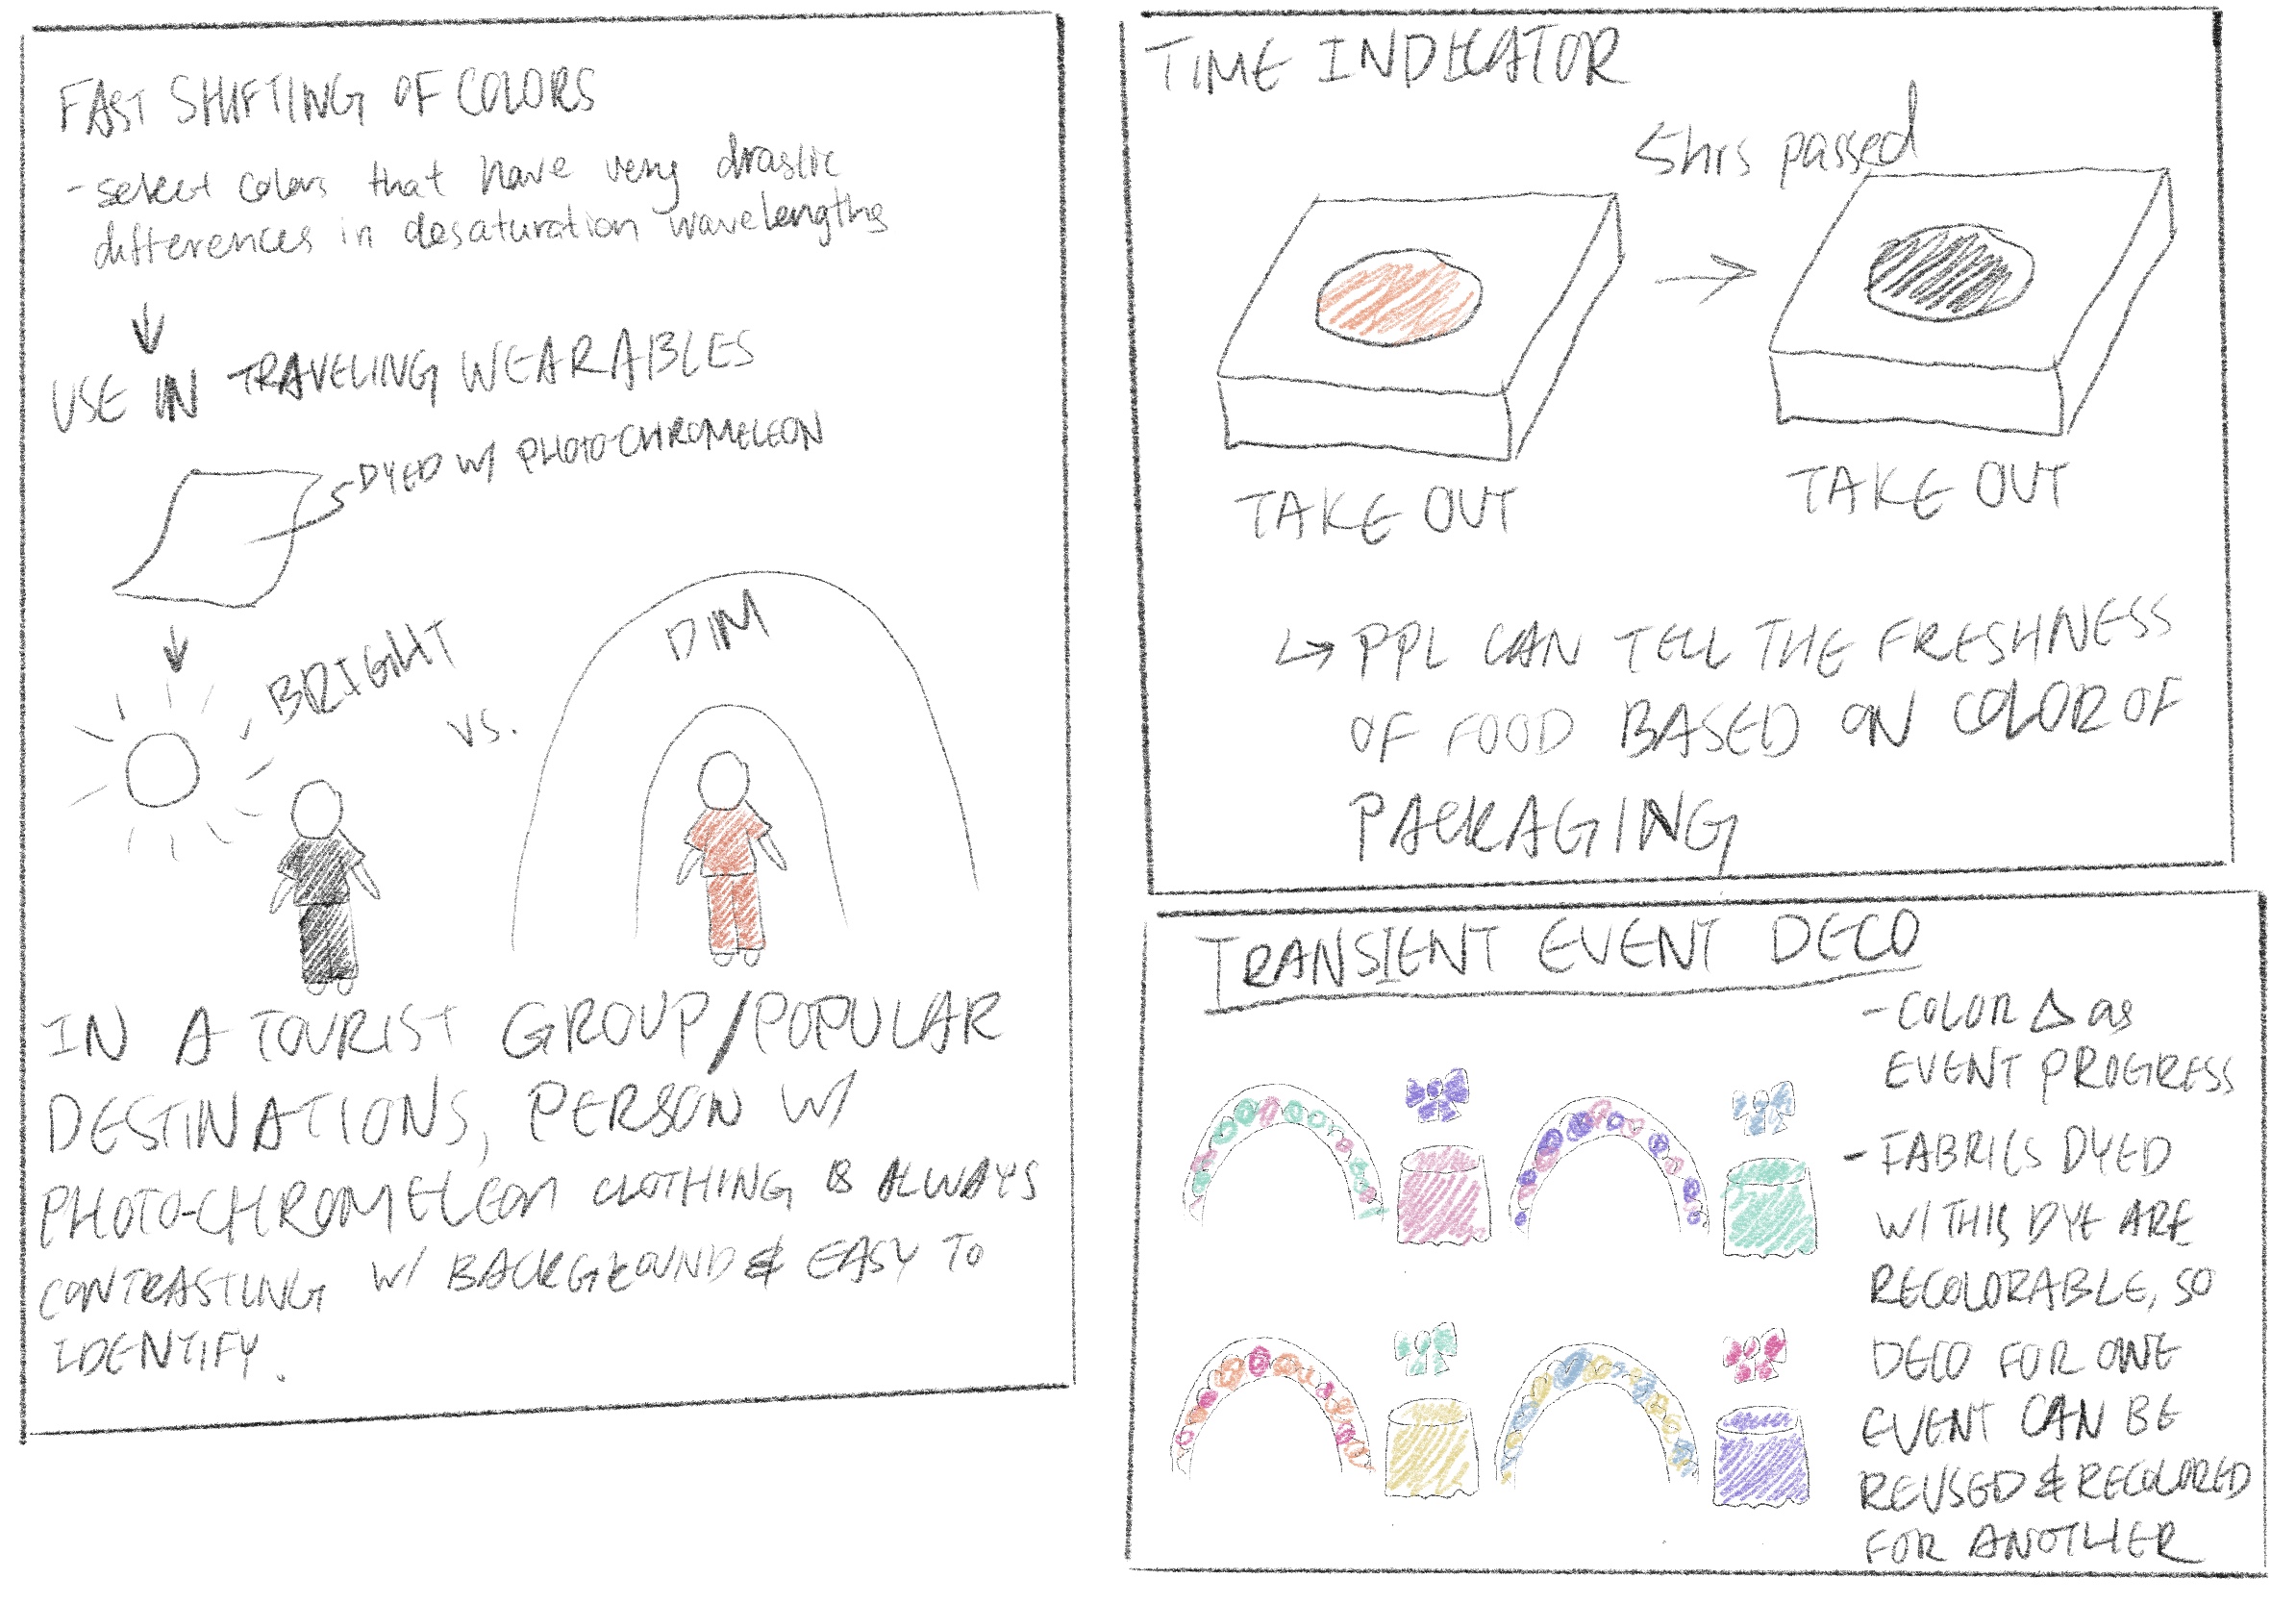 FAST SHIFTING OF COLORS
- select colors that have very drastic
differences in desaturation wavelengths
↓
USE IN TRAVELING WEARABLES
DYED W/ PHOTO-CHROMELEON
↓
BRIGHT
VS.
DIM
IN A TOURIST GROUP/POPULAR
DESTINATIONS, PERSON W/
PHOTO-CHROMELEON CLOTHING IS ALWAYS
CONTRASTING W/ BACKGROUND & EASY TO
IDENTIFY.
TIME INDICATOR
5hrs passed
→
TAKE OUT
TAKE OUT
↳ PPL CAN TELL THE FRESHNESS
OF FOOD BASED ON COLOR OF
PACKAGING
TRANSIENT EVENT DECO
- COLOR Δ as
EVENT PROGRESS
- FABRICS DYED
W/ THIS DYE ARE
RECOLORABLE, SO
DECO FOR ONE
EVENT CAN BE
REUSED & RECOLORED
FOR ANOTHER